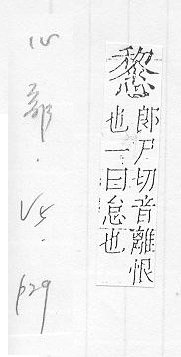 郎尸切音離恨
也一曰怠也
心部.V5.p29